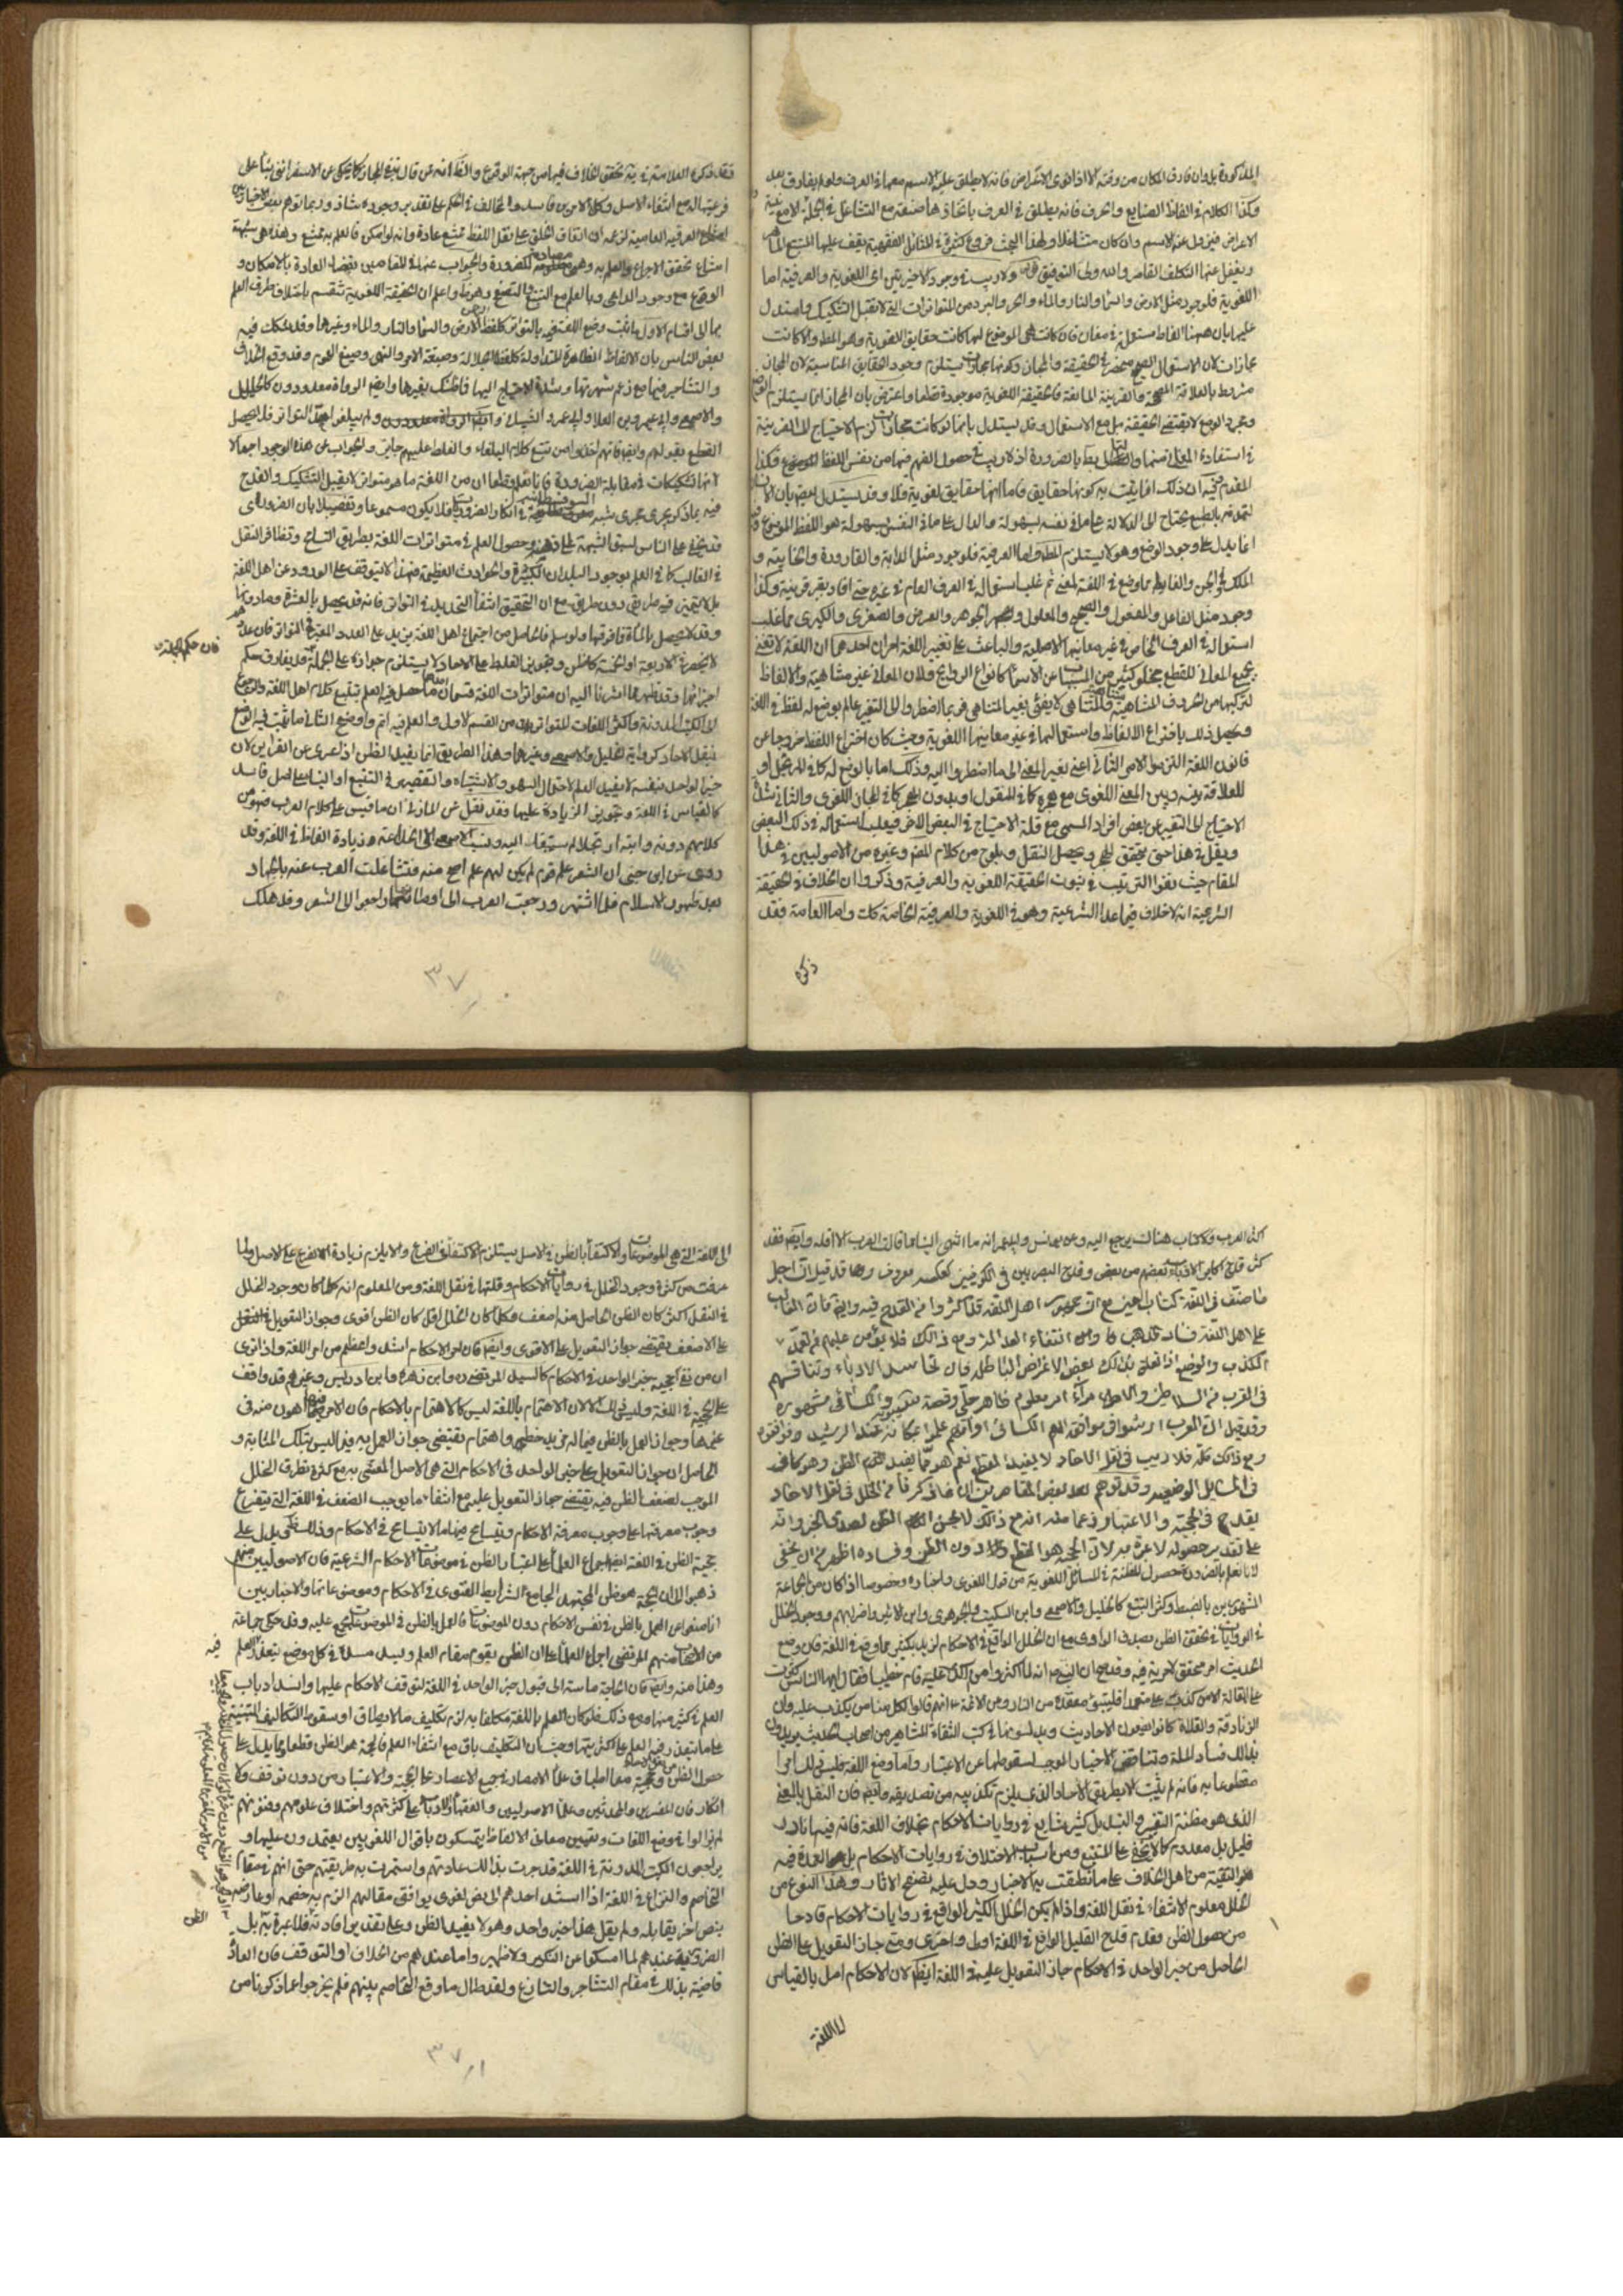 المذكورة بل وان فارق المكان من وقته لا اذا نوى الاعتراض فانه لا يطلق عليه الاسم معها في العرف ولو لم يفارق بعد
وكذا الكلام في الفاظ الصنايع والحرف فانه يطلق في العرف باتخاذها صنعة مع التشاغل في الجملة لا مع نية
الاعراض فيزول عنه الاسم وان كان متشاغلا ولهذا البحث فروع كثيرة في المسائل الفقهية يقف عليها المتتبع الماهر
ويغفل عنها المتكلف القاصر والله ولي التوفيق ولا ريب في وجود الاخيرتين اى اللغوية والعرفية اما
اللغوية فلوجود مثل الارض والسماء والنار والماء والحر والبرد من المتواترات التي لا تقبل التشكيك واستدل
عليها بان ههنا الفاظ مستعملة في معان فان كانت هي الموضوع لها كانت حقايق لغوية وهو المط والا كانت
مجازات لان الاستعمال الصحيح منحصر في الحقيقة والمجاز وكونها مجازات يستلزم وجود الحقايق المناسبة لان المجاز
مشروط بالعلاقة المصححة والقرينة المانعة فالحقيقة اللغوية موجودة قطعا واعترض بان المجاز انما يستلزم الوضع
ومجرد الوضع لا يقتضي الحقيقة بل مع الاستعمال وقد يستدل بانها لو كانت مجازات لزم الاحتياج الى القرينة
في استفادة المعاني منها والتالي بط بالضرورة اذ لا ريب في حصول الفهم منها من نفس اللفظ الموضوع فكذا
المقدم وفيه ان ذلك انما يثبت به كونها حقايق فاما انها حقايق لغوية فلا وقد يستدل ايضا بان الانسان
لتمدنه بالطبع يحتاج الى الدلالة على ما في نفسه بسهولة والدال على ما في النفس بسهولة هو اللفظ الموضوع وفيه
انما يدل على وجود الوضع وهو لا يستلزم المط واما العرفية فلوجود مثل الدابة والقارورة والخابية و
الملك والجن والغايط مما وضع في اللغة لمعنى ثم غلب استعماله في العرف العام في غيره حتى افاد بغير قرينة وكذا
وجود مثل الفاعل والمفعول والصحيح والمعلول والجوهر والعرض والصغرى والكبرى مما غلب
استعماله في العرف الخاص في غير معانيها الاصلية والباعث على تغيير اللغة امران احدهما ان اللغة لا تفي
بجميع المعاني للقطع بخلو كثير من المسميات عن الاسماء كانواع الروايح ولان المعاني غير متناهية والالفاظ
لتركبها من الحروف المتناهية متناهية والمتناهي لا يفي بغير المتناهي فربما اضطروا الى التعبير عما لم يوضع له لفظ في اللغة
ويحصل ذلك باختراع الالفاظ واستعمالها في غير معانيها اللغوية وحيث كان اختراع اللفظ خروجا عن
قانون اللغة التزموا الامر الثاني اعني تغيير المعنى الى ما اضطروا اليه وذلك اما بالوضع له كما في المرتجل او
للعلاقة بينه وبين المعنى اللغوي مع هجره كما في المنقول او بدون الهجر كما في المجاز اللغوي والثاني شدة
الاحتياج الى التعبير عن بعض افراد المسمى مع قلة الاحتياج في البعض الاخر فيغلب استعماله في ذلك البعض
ويقل في هذا حتى يتحقق الهجر ويحصل النقل ويلوح من كلام العلامة وغيره من الاصوليين في هذا
المقام حيث بنوا الترتيب في ثبوت الحقيقة اللغوية والعرفية وذكروا ان الخلاف في الحقيقة
الشرعية انه لا خلاف فيما عدا الشرعية وهو في اللغوية والعرفية الخاصة كك واما العامة فقد
ذكر
فقد ذكر العلامة في يه تحقق الخلاف فيها من جهة الوقوع
فرعيتها له مع انتفاء الاصل وكلا الامرين فاسد والمخالف في الحكم على تقدير وجوده شاذ وربما توهم بعض الاخباريين
العرفية العامية لزعمه ان اتفاق الخلق على نقل اللفظ ممتنع عادة وانه لو امكن فالعلم به ممتنع وهذه هي شبهة
امتناع تحقق الاجماع والعلم به وهي مصادمة للضرورة والجواب عنها في المقامين بقضاء العادة بالامكان و
الوقوع مع وجود الداعي وبالعلم مع التتبع والتصفح وهو واعلم ان الحقيقة اللغوية تنقسم باختلاف طرق العلم
بها الى اقسام الاول ما ثبت وضع اللغة فيه بالتواتر كلفظ الارض والسماء والنار والماء وغيرها وقد شكك فيه
بعض الناس بان الالفاظ الظاهرة المتداولة كلفظ الجلالة وصيغة الامر والنهي وصيغ العموم وقد وقع الخلاف
والتشاجر فيها مع زعم شهرتها وشدة الاحتياج اليها فما ظنك بغيرها وايضا الرواة معدودون كالخليل
والاصمعي وابي عمرو بن العلا وابي عمرو الشيباني ولم يبلغوا حد التواتر فلا يحصل
القطع بقولهم وايضا فانهم اخذوا من تتبع كلام البلغاء والغلط عليهم جايز والجواب عن هذه الوجوه اجمالا
انها تشكيكات في مقابلة الضرورة فانا نعلم قطعا ان من اللغة ما هو متواتر لا يقبل التشكيك والقدح
فيه بما ذكر يجري مجرى شبه السوفسطائية في انكار الضروريات فلا يكون مسموعا وتفصيلا بان الضروري
قد يخفى على الناس لسبق الشبهة الى ذهنه وحصول العلم في متواترات اللغة بطريق التسامع وتظافر النقل
في الغالب كما في العلم بوجود البلدان الكبيرة والحوادث العظيمة فهذا لا يتوقف على الورود عن اهل اللغة
بل لا يتميز فيه طريق دون طريق مع ان التحقيق انتفاء التحديد في التواتر فانه قد يحصل بالعشرة وما دونها
وقد لا يحصل بالمائة فما فوقها ولو سلم فالحاصل من اجتماع اهل اللغة يزيد على العدد المعتبر في التواتر فان علم
لا ينحصر في الاربعة او الخمسة كما ظن وتجويز الغلط على الاحاد لا يستلزم جوازه على الجملة فقد يفارق حكم
فان حكم الجملة قد
اجزائها وقد ظهر مما اشرنا اليه ان متواترات اللغة قسمان احدهما ما حصل فيه العلم بتتبع كلام اهل اللغة والرجوع
الى الكتب المدونة واكثر اللغات المتواترة من القسم الاول والعلم فيه اتم واوضح الثاني ما ثبت فيه الوضع
بنقل الاحاد كرواية الخليل والاصمعي وغيرهما وهذا الطريق انما يفيد الظن اذا عرى عن القراين لان
خبر الواحد بنفسه لا يفيد العلم لاحتمال السهو والاشتباه والتقصير في التتبع او البناء على اصل فاسد
كالقياس في اللغة وتجويز الزيادة عليها فقد نقل عن المازني ان ما قيس على كلام العرب فهو من
كلامهم
روى عن ابن جني ان الشعر علم قوم لم يكن لهم علم اصح منه فتشاغلت العرب عنه بالجهاد
بعد ظهور الاسلام فلما اشتهر ورجعت العرب الى اوطانها راجعوا الى الشعر وقد هلك
٣٧
اكثر العرب ولا كتاب هناك يرجع اليه وعن يونس وابي عمر انه ما انتهى الينا مما قالت العرب الا اقله وايضا فقد
كثر قدح اكابر الادباء بعضهم من بعض وقدح البصريين في الكوفيين كعكسه معروف وربما قد قيل ان اجل
ما صنف في اللغة كتاب العين مع ان جمهور اهل اللغة قد اكثروا من القدح فيه وايضا فان الغالب
على اهل اللغة فساد المذهب وانتفاء العدالة ومع ذلك فلا يؤمن عليهم من تعمد
الكذب والوضع اذا تعلق بذلك بعض الاغراض الباطلة فان تحاسد الادباء وتنافسهم
في القرب من السلاطين والامراء امر معلوم ظاهر جلي وقصة سيبويه والكسائي مشهورة
وقد قيل ان العرب ارتشوا في موافقة الكسائي او انهم علموا مكانه عند الرشيد فوافقوه
ومع ذلك كله فلا ريب في نقل الاحاد لا يفيد القطع نعم هو مما يفيد الظن وهو كاف
في المسائل الوضعية وقد توهم بعض القاصرين ان ما ذكرنا من الخلل في نقل الاحاد
يقدح في الحجية والاعتبار زعما منه انه مع ذلك لا يحصل الظن لصدق الخبر وانه
على تقدير حصوله لا عبرة به لان الحجة هو القطع دون الظن وفساده اظهر من ان يخفى
لانا نعلم بالضرورة حصول المظنة في المسائل اللغوية من قول اللغوي واخباره وخصوصا اذا كان من الجماعة
المشهورين بالضبط وكثرة التتبع كالخليل والاصمعي وابن السكيت والجوهري وابن الاثير واضرابهم ووجود الخلل
في الروايات لا تحقق الظن بصدق الراوي مع ان الخلل الواقع في الاحكام يزيد بكثير مما وقع في اللغة فان وضع
الحديث امر محقق لا مرية فيه وقد صح ان النبي ص انه لما اكثروا من الكذب عليه قام خطيبا فقال ايها الناس كثرت
على القالة الا من كذب على متعمدا فليتبوء مقعده من النار وعن الائمة ع انهم قالوا لكل منا من يكذب عليه وان
الزنادقة والغلاة كانوا يضعون الاحاديث ويدسونها في كتب الثقاة المشاهير من اصحاب الحديث يريدون
بذلك فساد الملة وتناقض الاخبار الموجب لسقوطها عن الاعتبار واما وضع اللغة فليس كذلك
مقطوعا به فانه لم يثبت الا بطريق الاحاد الذي يلزم تكذيبه من تصديقه وايضا فان النقل بالمعنى
الذي هو مظنة التغيير والتبديل كثير شايع في روايات الاحكام بخلاف اللغة فانه فيها نادر
قليل بل معدوم كما لا يخفى على المتتبع ومن اسباب الاختلاف في روايات الاحكام بل هو العمدة فيه
هو التقية من اهل الخلاف على ما نطقت به الاخبار ودل عليه تصفح الاثار وهذا النوع من
الخلل معلوم الانتفاء في نقل اللغة واذا لم يكن الخلل الكثير الواقع في روايات الاحكام قادحا
من حصول الظن فعدم قدح القليل الواقع في اللغة اولى واحرى ومتى جاز التعويل على الظن
الحاصل من خبر الواحد في الاحكام جاز التعويل عليه في اللغة ايضا لان الاحكام اصل بالقياس
الى اللغة
الى اللغة التي هي الموضوعات والاكتفاء بالظن في الاصل يستلزم الاكتفاء في الفرع والا يلزم زيادة الفرع على الاصل ولما
عرفت من كثرة وجود الخلل في روايات الاحكام وقلتها في نقل اللغة ومن المعلوم انه كلما كان وجود الخلل
في النقل اكثر كان الظن الحاصل منه اضعف وكلما كان الخلل اقل كان الظن اقوى وجواز التعويل
على الاضعف يقتضي جواز التعويل على الاقوى وايضا فان امر الاحكام اشد واعظم من امر اللغة ولذا ترى
ان من نفى حجية خبر الواحد في الاحكام كالسيد المرتضى وابن زهرة وابن ادريس وغيرهم قد وافق
على الحجية في اللغة وليس ذلك الا لان الاهتمام باللغة ليس كالاهتمام بالاحكام فان الامر فيها اهون منه في
غيرها وجواز العمل بالظن فيما له مزيد خطر واهتمام تقتضي جواز العمل به فيما ليس بتلك المثابة و
الحاصل ان جواز التعويل على خبر الواحد في الاحكام التي هي الاصل المعتنى به مع كثرة تطرق الخلل
الموجب لضعف الظن فيه يقتضي جواز التعويل عليه مع انتفاء ما يوجب الضعف في اللغة التي يتفرع
وجوب معرفتها على وجوب معرفة الاحكام ويتسامح فيها ما لا يتسامح في الاحكام وذلك ظاهر ويدل على
حجية الظن في اللغة ايضا اجماع العلماء على اعتبار الظن في موضوعات الاحكام الشرعية فان الاصوليين منهم
ذهبوا الى ان الحجة هو ظن المجتهد الجامع لشرايط الفتوى في الاحكام وموضوعاتها والاخباريين
انما منعوا من العمل بالظن في نفس الاحكام دون الموضوعات فالعمل بالظن في الموضوعات مجمع عليه وقد حكى جماعة
من الاصحاب منهم المرتضى اجماع العلماء على ان الظن يقوم مقام العلم ويسد مسده في كل موضع يتعذر فيه العلم
وهذا منه وايضا فان الحاجة ماسة الى قبول خبر الواحد في اللغة لتوقف الاحكام عليها وانسداد باب
العلم في كثير منها ومع ذلك فلو كان العلم باللغة مكلفا به لزم تكليف ما لا يطاق او سقوط التكاليف المبتنية
على ما يتعذر فيه العلم على كثرتها وحيث ان التكليف باق مع انتفاء العلم فالحجة هو الظن قطعا ومما يدل على
حصول الظن وحجيته معا اطباق علماء الامصار في جميع الاعصار على الحجية والاعتبار من دون توقف ولا
انكار فان المفسرين والمحدثين وعلماء الاصوليين والفقهاء والادباء على كثرتهم واختلاف علومهم وفنونهم
لم يزالوا في وضع اللغات وتعيين معاني الالفاظ يتمسكون باقوال اللغويين يعتمدون عليها و
يراجعون الكتب المدونة في اللغة قد جرت بذلك عادتهم واستمرت به طريقتهم حتى انهم في مقام
التخاصم والنزاع في اللغة اذا استند احدهم الى نص لغوي يوافق مقالتهم الزم به خصمه او عارضه
بنص اخر يقابله ولم يقل هذا خبر واحد وهو لا يفيد الظن وعلى تقدير افادته فلا عبرة به بل
عندهم لما امسكوا عن النكير ولا ظهير واما عندهم من الخلاف او التوقف فان العادة
قاضية بذلك في مقام التشاجر والتنازع ولقد طال ما وقع التخاصم بينهم فلم يخرجوا عما ذكرنا من
الظن
٣٧١